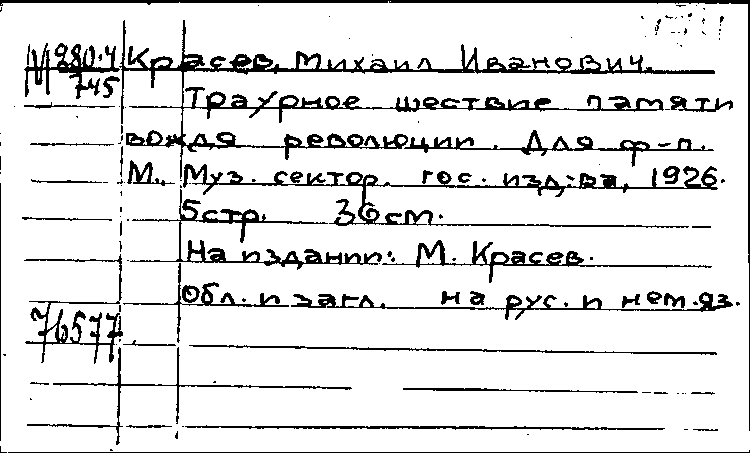 М 280.4 Красев, Михаил Иванович.
745
Траурное шествие памяти
вождя революции. Для ф-п.
М., Муз. сектор. гос. изд-ва, 1926.
5стр. 36см.
На издании: М. Красев.
Обл. и загл. на рус. и нем.яз.
76577